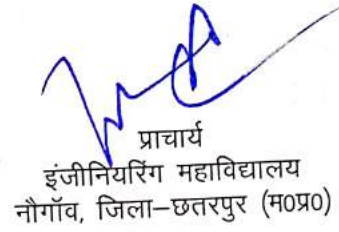 प्राचार्य
इंजीनियरिंग महाविद्यालय
नौगॉव, जिला–छतरपुर (म०प्र०)